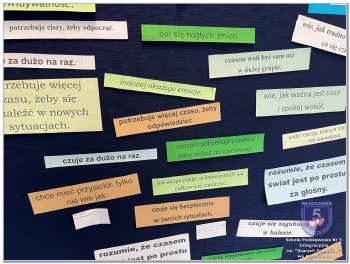 potrzebuje ciszy, żeby odpocząć.
boi się nagłych zmian.
wie, jak trudno
co się
za dużo na raz.
czasem woli być sam niż
w dużej grupie.
inaczej okazuje emocje.
trzebuje więcej
zasu, żeby się
naleźć w nowych
sytuacjach.
wie, jak ważna jest cisza
i spokój wokół.
potrzebuje więcej czasu, żeby
odpowiedzieć
widzi rzeczy, których inni
nie zauważają.
czasem potrzebuje przerwy,
żeby wrócić do równowagi.
czuje za dużo na raz.
rozumie, że czasem
świat jest po prostu
za głośny.
chce mieć przyjaciół, tylko
nie wie jak
ma swoje pasje, w które potrafi się
całkowicie zanurzyć.
czuje się bezpiecznie
w swoich rytuałach.
czuje się zagubiony
w hałasie.
rozumie, że czasem
świat jest po prostu
WŁOCŁAWEK
5
Szkoła Podstawowa Nr 5
Integracyjna